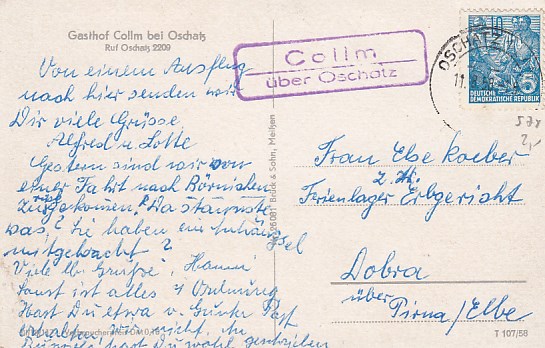 Gasthof Collm bei Oschatz
Ruf Oschatz 2209
Collm
über Oschatz
OSCHATZ
11.
5
DEUTSCHE
DEMOKRATISCHE REPUBLIK
Von einem Ausflug
nach hier senden wir
Dir viele Grüsse
Alfred u. Lotte
Gestern sind wir von
einer Fahrt nach
zurückgekommen. Da staunste
was? Sie haben
mitgebracht?
Viele lb. Grüße,
Sonst ist alles i. Ordnung
Hast Du etwa v. Günter Post
erhalten wir nicht,
hast Du wohl geschrieben
Brück & Sohn, Meißen
Frau Else Koeber
z. Zt.
Ferienlager Erbgericht
Dobra
über
Pirna/Elbe
T 107/58